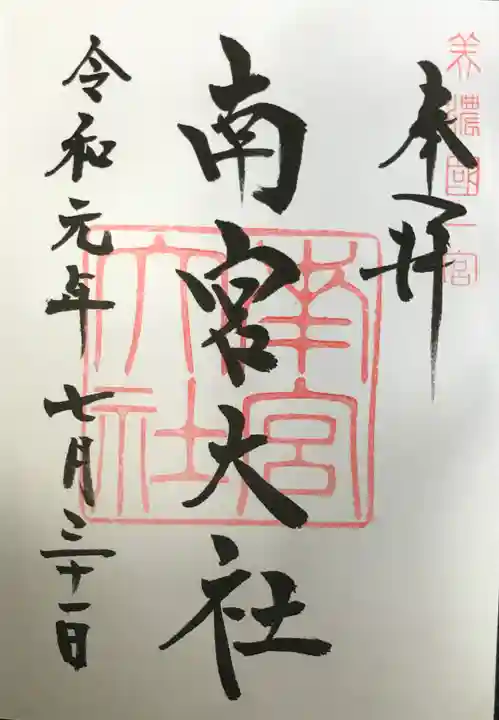 美濃國一宮
奉拝
南宮大社
南宮大社
令和元年七月三十一日